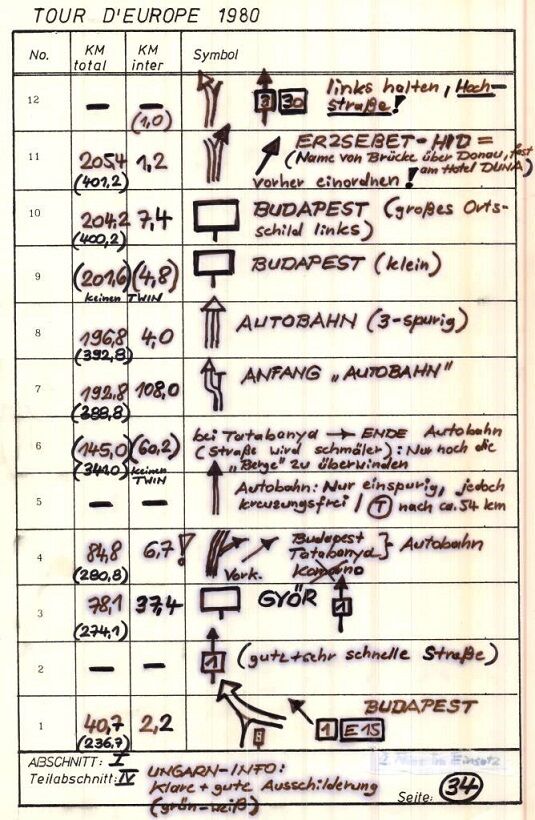 TOUR D'EUROPE 1980
No. KM total KM inter Symbol
12 — — (1,0) 3 30 links halten, Hoch-
straße!
11 205,4 (401,2) 1,2 ERZSEBET-HID =
(Name von Brücke über Donau, fast
vorher einordnen! am Hotel DUNA)
10 204,2 (400,2) 7,4 BUDAPEST (großes Orts-
schild links)
9 (201,6) (4,8) BUDAPEST (klein)
keinen TWIN
8 196,8 (392,8) 4,0 AUTOBAHN (3-spurig)
7 192,8 (388,8) 108,0 ANFANG „AUTOBAHN"
6 (145,0) (341,0) (60,2) keinen TWIN bei Tatabanya → ENDE Autobahn
(Straße wird schmäler): Nur noch die
„Berge" zu überwinden
5 — — Autobahn: Nur einspurig, jedoch
kreuzungsfrei / T nach ca. 54 km
4 84,8 (280,8) 6,7! Vork. Budapest
Tatabanya } Autobahn
Komarno
3 78,1 (274,1) 37,4 GYÖR 1
2 — — 1 (gute+sehr schnelle Straße)
1 40,7 (236,7) 2,2 BUDAPEST
1 E 15
ABSCHNITT: I
Teilabschnitt: IV
UNGARN-INFO:
Klare + gute Ausschilderung
(grün-weiß)
Seite: 34